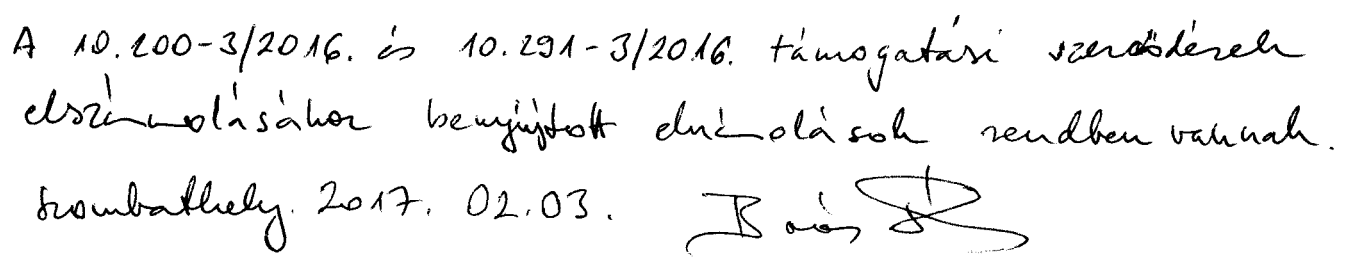 A 10.200-3/2016. és 10.291-3/2016. támogatási szerződések
elszámolásához benyújtott elszámolások rendben vannak.
Szombathely. 2017. 02.03.